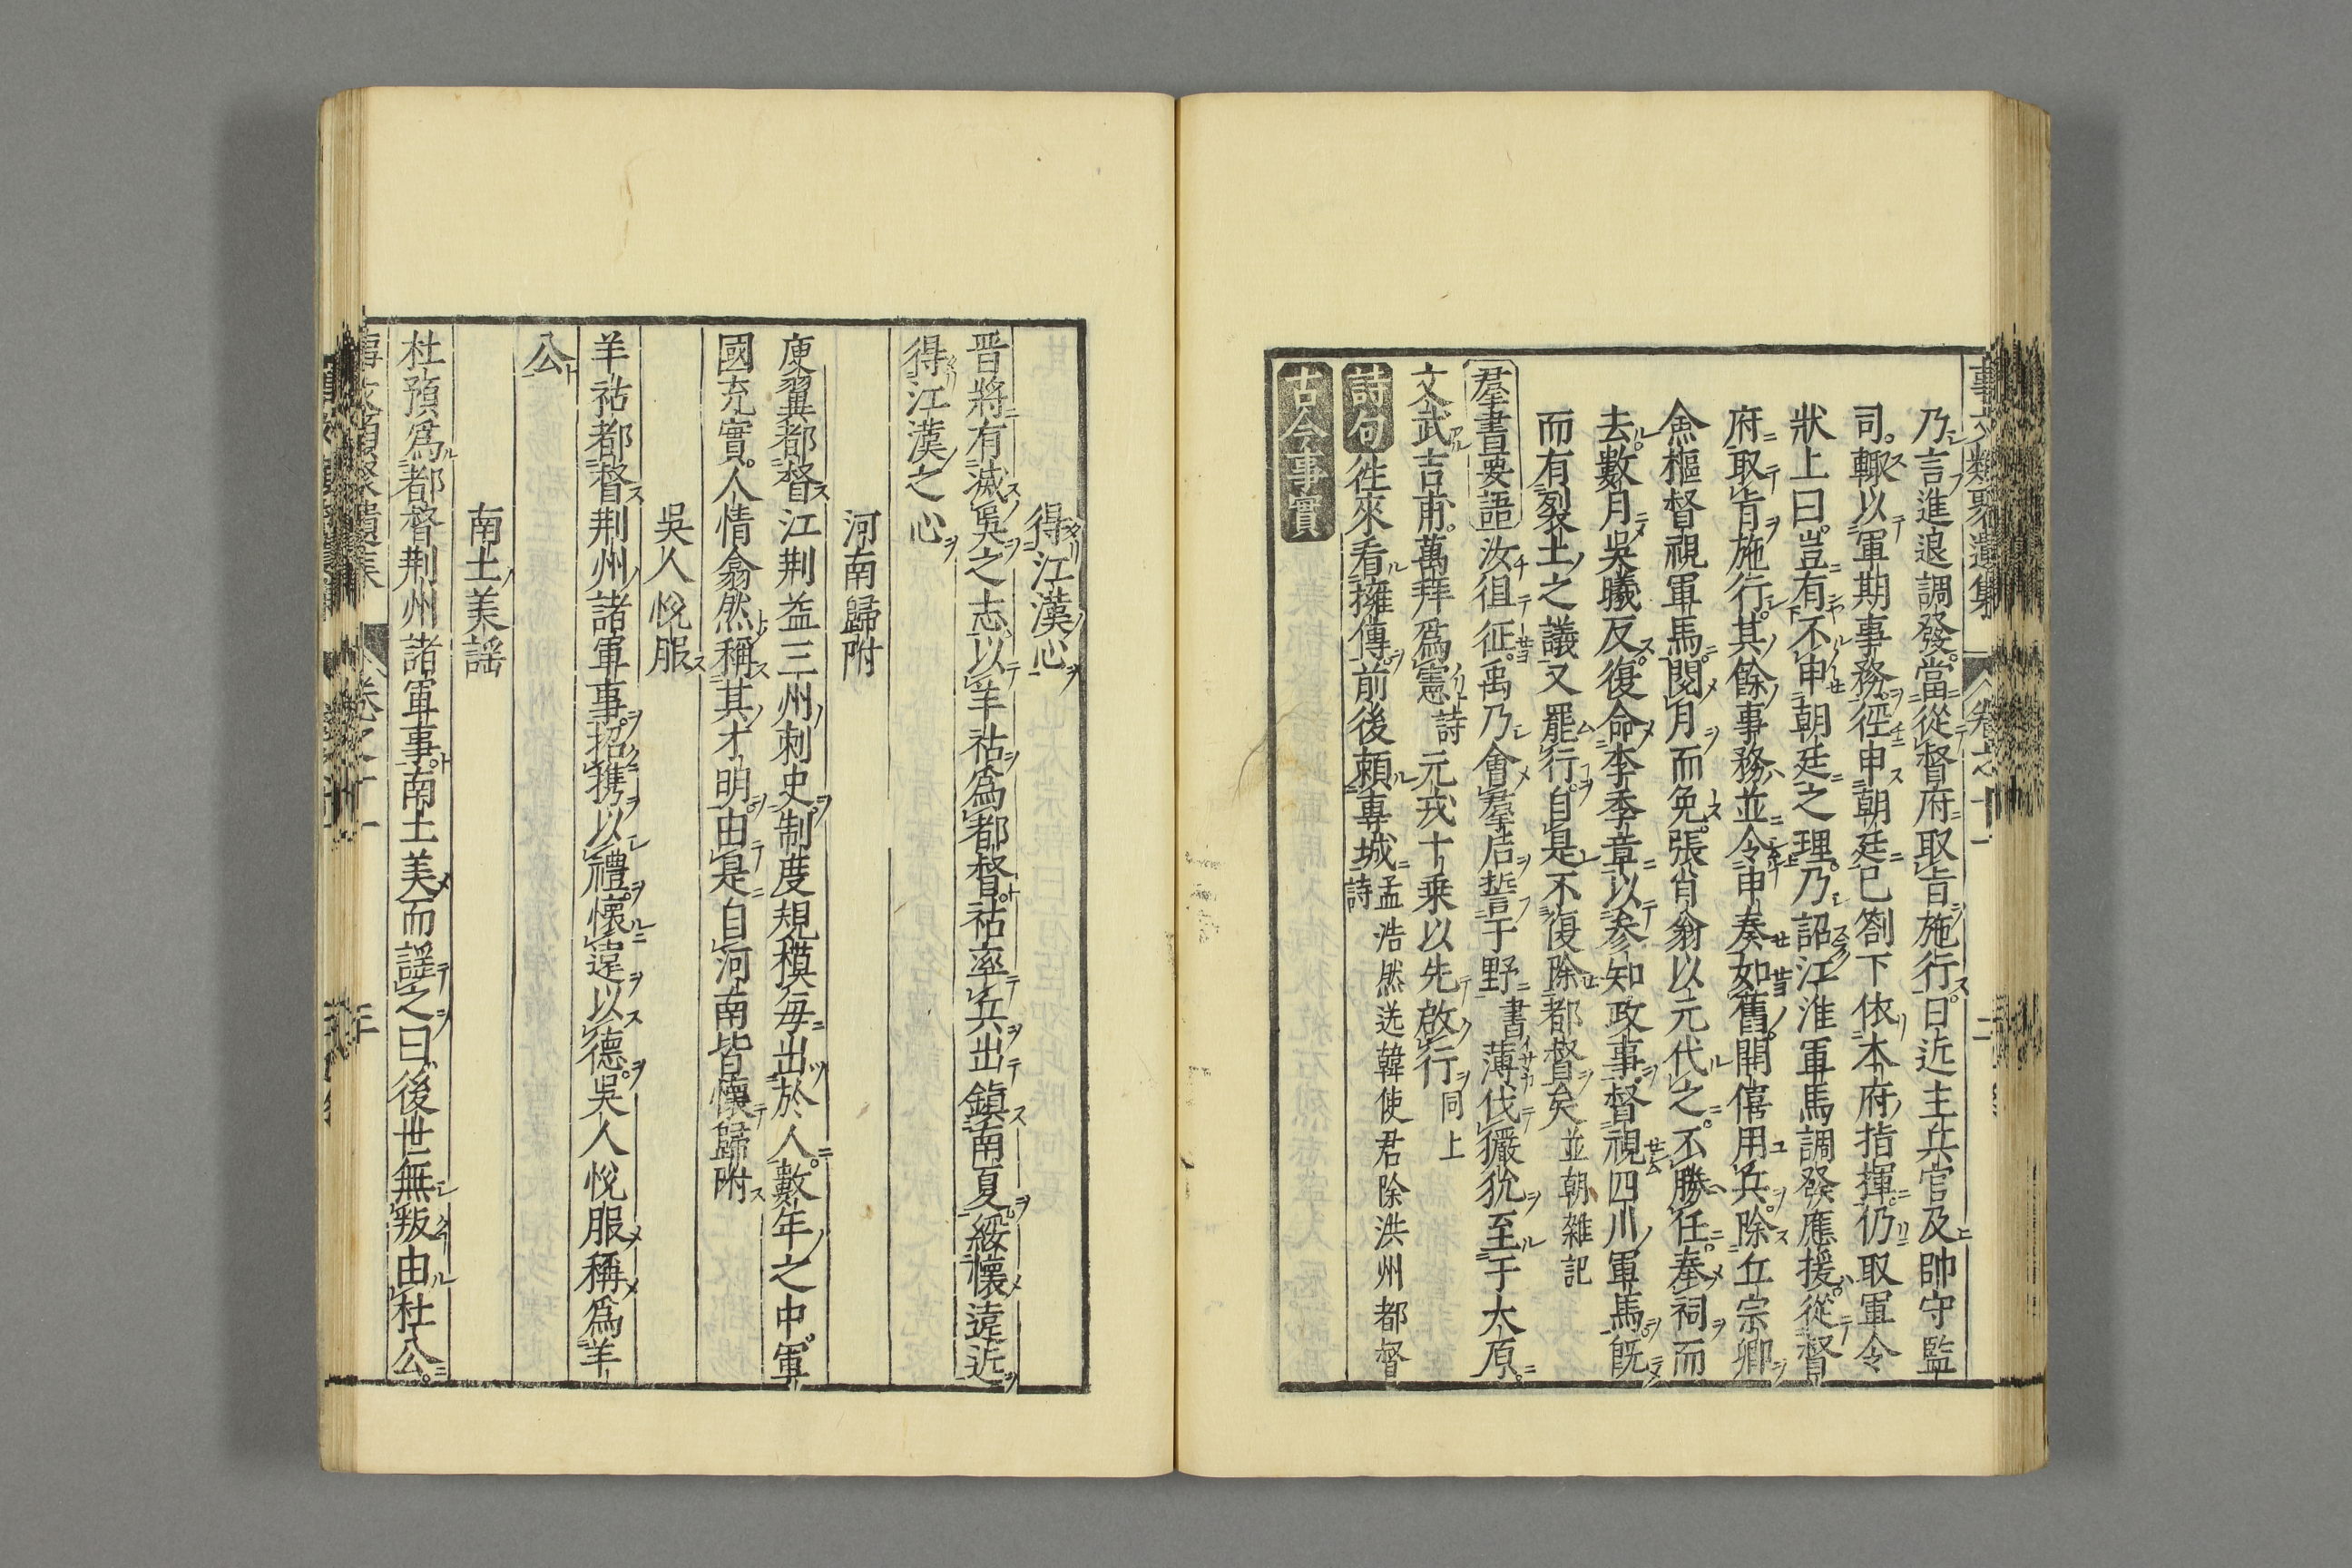 事文類聚遺集 卷之十一 二
乃言進退調發當從督府取旨施行日近主兵官及帥守監
司輙以軍期事務徑申朝廷已劄下依本府指揮仍取軍令
狀上曰豈有不申朝廷之理乃詔江淮軍馬調發應援從督
府取旨施行其餘事務並令申奏如舊開僖用兵除丘宗卿
僉樞督視軍馬閱月而免張肖翁以元代之不勝任奉祠而
去數月吳曦反復命李季章以參知政事督視四川軍馬既
而有裂土之議又罷行自是不復除都督矣並朝雜記
羣書要語汝徂征禹乃會羣后誓于野書薄伐玁狁至于大原
文武吉甫萬拜爲憲詩元戎十乗以先啟行同上
詩句徃來看擁傳前後頼專城孟浩然送韓使君除洪州都督詩
古今事實
得江漢心
晋將有滅吳之志以羊祜爲都督祜率兵出鎮南夏綏懷遠近
得江漢之心
河南歸附
庾翼都督江荆益三州刺史制度規模每出於人數年之中軍
國充實人情翕然稱其才明由是自河南皆懷歸附
吳人悅服
羊祜都督荆州諸軍事招携以禮懷遠以德吳人悅服稱爲羊
公
南土美謡
杜預爲都督荆州諸軍事南土美而謡之曰後世無叛由杜公